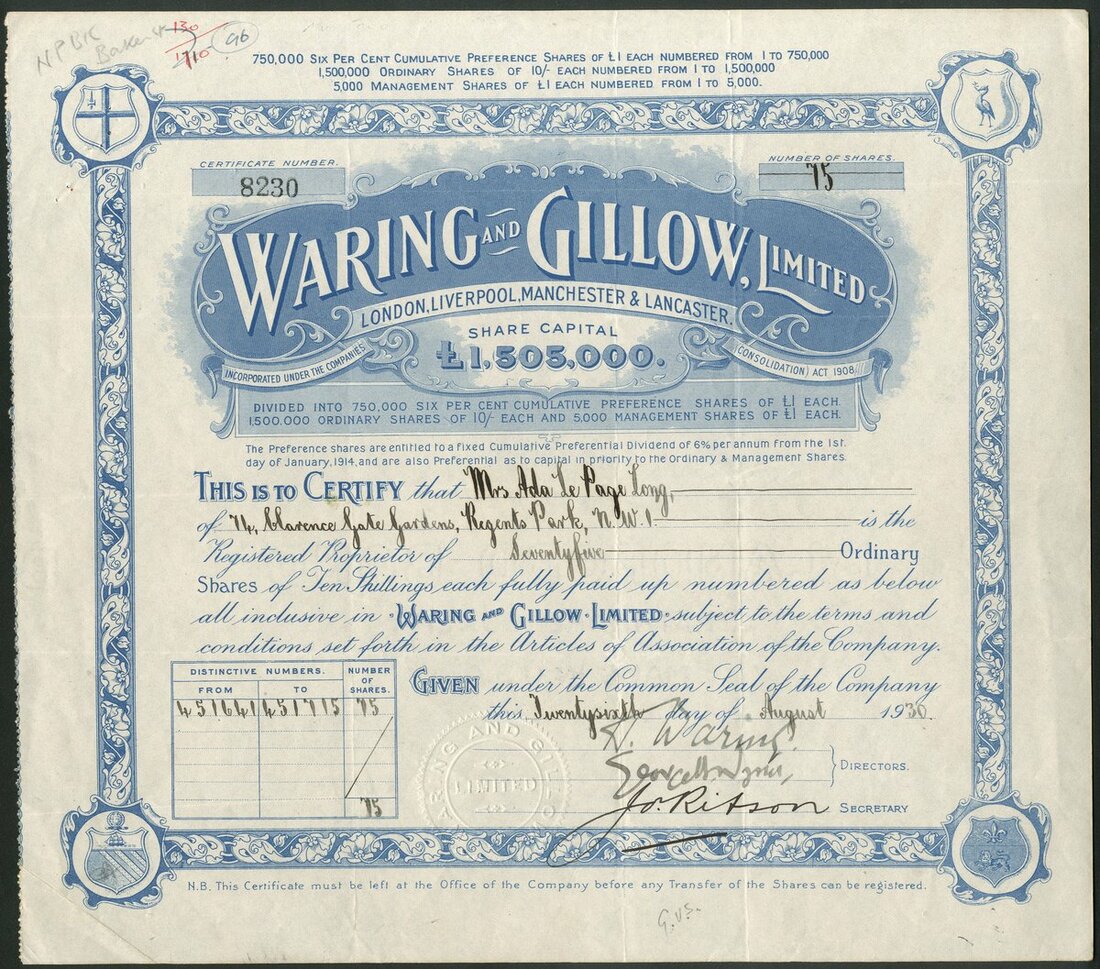 NPBK
Barker &
130
1710
96
750,000 SIX PER CENT CUMULATIVE PREFERENCE SHARES OF £1 EACH NUMBERED FROM 1 TO 750,000
1,500,000 ORDINARY SHARES OF 10/- EACH NUMBERED FROM 1 TO 1,500,000
5,000 MANAGEMENT SHARES OF £1 EACH NUMBERED FROM 1 TO 5,000.
CERTIFICATE NUMBER.
8230
NUMBER OF SHARES.
75
WARING AND GILLOW, LIMITED
LONDON, LIVERPOOL, MANCHESTER & LANCASTER.
SHARE CAPITAL
£1,505,000.
INCORPORATED UNDER THE COMPANIES (CONSOLIDATION) ACT 1908
DIVIDED INTO 750,000 SIX PER CENT CUMULATIVE PREFERENCE SHARES OF £1 EACH.
1,500,000 ORDINARY SHARES OF 10/- EACH AND 5,000 MANAGEMENT SHARES OF £1 EACH.
The Preference shares are entitled to a fixed Cumulative Preferential Dividend of 6% per annum from the 1st.
day of January, 1914, and are also Preferential as to capital in priority to the Ordinary & Management Shares.
THIS IS TO CERTIFY that Mrs Ada Le Page Long,
of 74, Clarence Gate Gardens, Regents Park, N.W.1. is the
Registered Proprietor of Seventyfive Ordinary
Shares of Ten Shillings each fully paid up numbered as below
all inclusive in WARING AND GILLOW LIMITED subject to the terms and
conditions set forth in the Articles of Association of the Company.
DISTINCTIVE NUMBERS.
NUMBER OF SHARES.
FROM TO
451641 451715 75
75
GIVEN under the Common Seal of the Company
this Twentysixth day of August 1930.
S. Waring.
DIRECTORS.
Jo. Ritson SECRETARY
WARING AND GILLOW
LIMITED
N.B. This Certificate must be left at the Office of the Company before any Transfer of the Shares can be registered.
G.V.S.